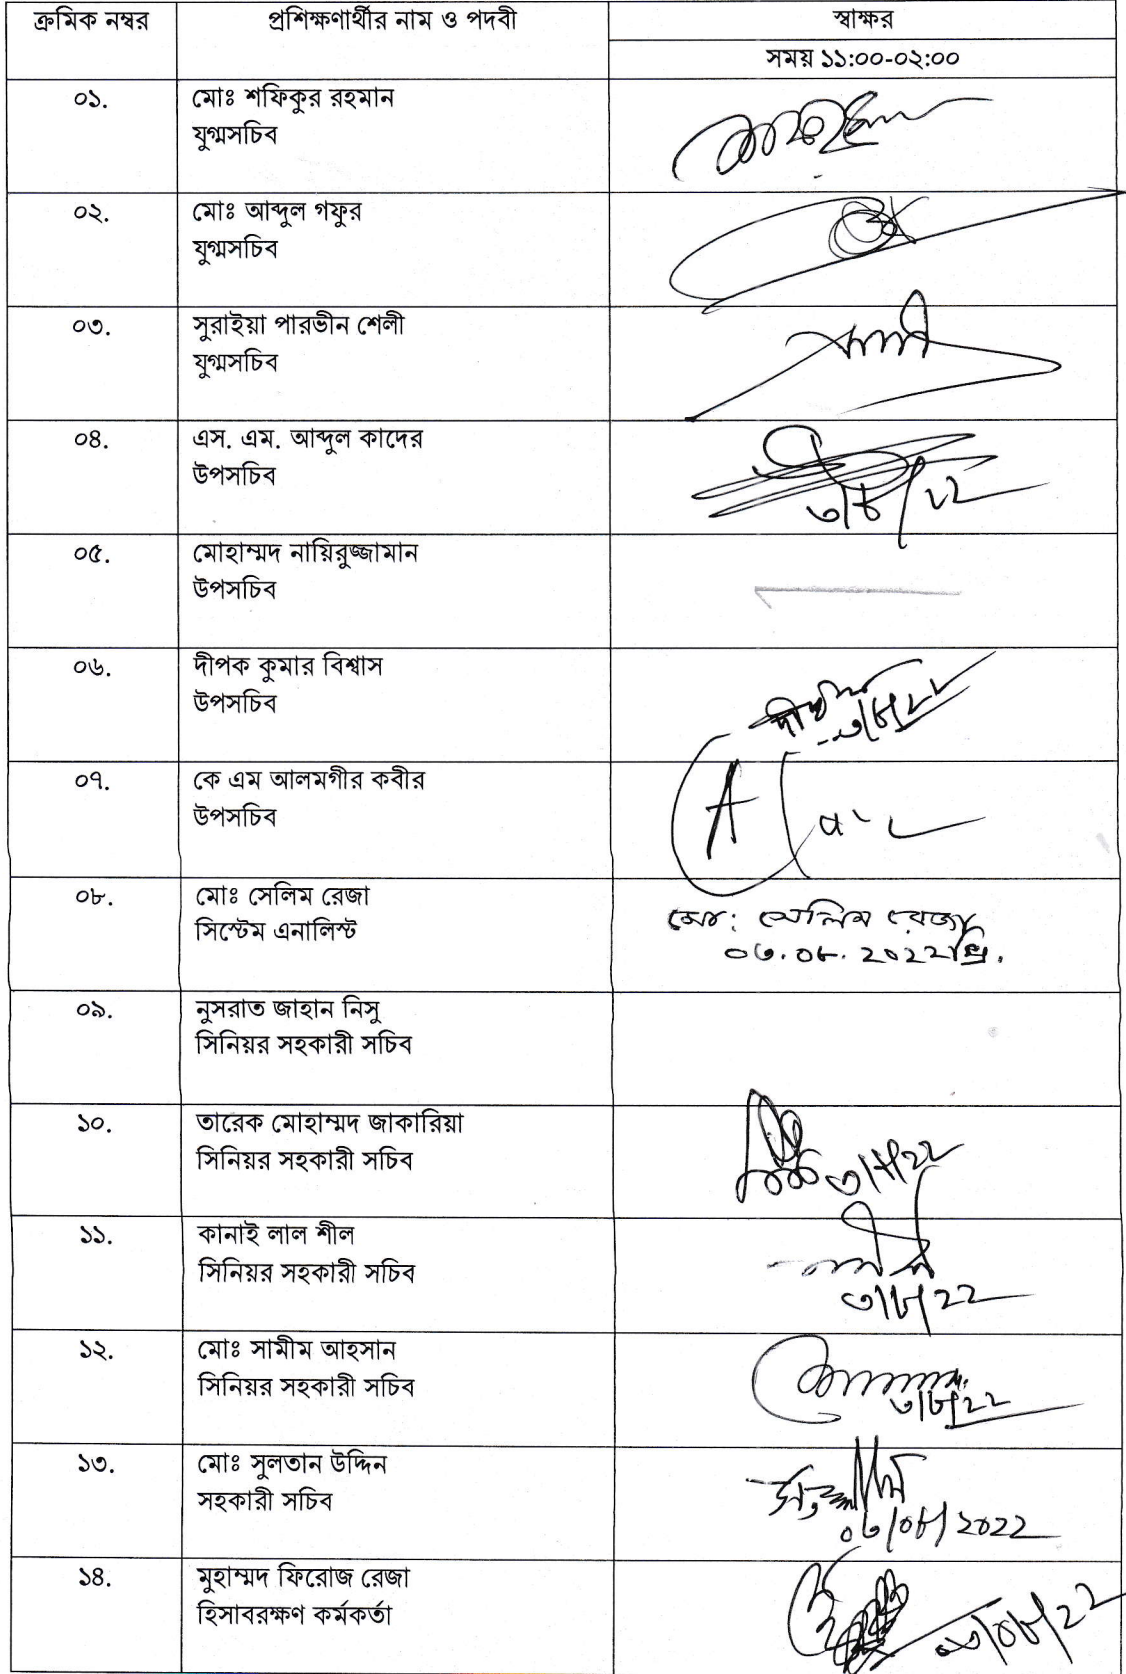 ক্রমিক নম্বর প্রশিক্ষণার্থীর নাম ও পদবী স্বাক্ষর
সময় ১১:০০-০২:০০
০১. মোঃ শফিকুর রহমান
যুগ্মসচিব
০২. মোঃ আব্দুল গফুর
যুগ্মসচিব
০৩. সুরাইয়া পারভীন শেলী
যুগ্মসচিব
০৪. এস. এম. আব্দুল কাদের
উপসচিব
৩/৮/২২
০৫. মোহাম্মদ নায়িরুজ্জামান
উপসচিব
০৬. দীপক কুমার বিশ্বাস
উপসচিব
৩/৮/২২
০৭. কে এম আলমগীর কবীর
উপসচিব
০৮. মোঃ সেলিম রেজা মো: সেলিম রেজা
সিস্টেম এনালিস্ট ০৩.০৮.২০২২খ্রি.
০৯. নুসরাত জাহান নিসু
সিনিয়র সহকারী সচিব
১০. তারেক মোহাম্মদ জাকারিয়া
সিনিয়র সহকারী সচিব ৩/৮/২২
১১. কানাই লাল শীল
সিনিয়র সহকারী সচিব
৩/৮/২২
১২. মোঃ সামীম আহসান
সিনিয়র সহকারী সচিব ৩/৮/২২
১৩. মোঃ সুলতান উদ্দিন
সহকারী সচিব
০৩/০৮/২০২২
১৪. মুহাম্মদ ফিরোজ রেজা
হিসাবরক্ষণ কর্মকর্তা ০৩/০৮/২২